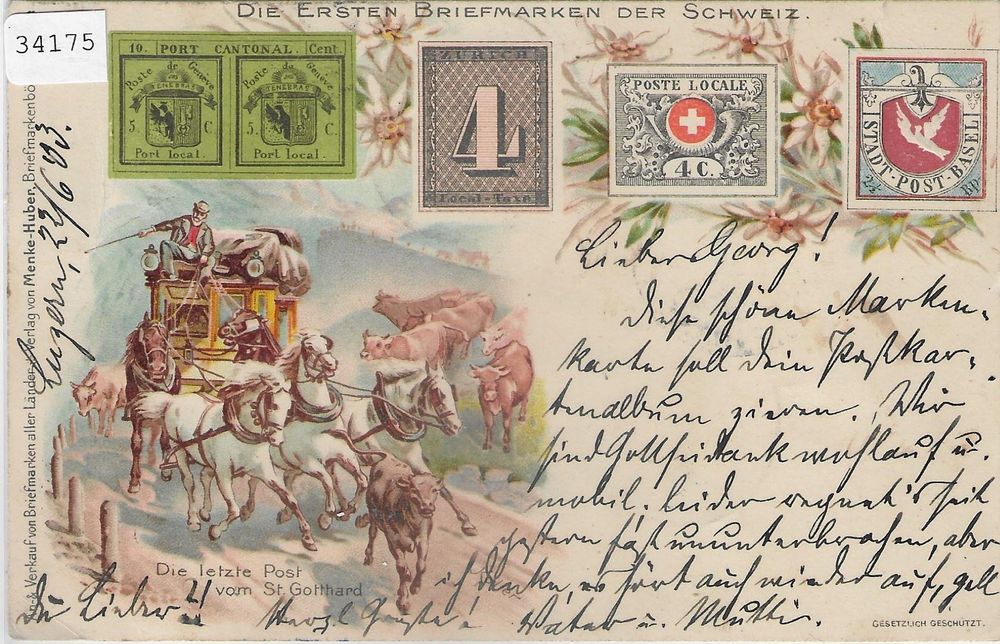 Die Ersten Briefmarken der Schweiz.
34175
10. PORT CANTONAL. Cent.
Poste de Genève Poste de Genève
TENEBRAS TENEBRAS
5. C. 5. C.
Port local. Port local.
ZÜRICH
4
Local-Taxe
POSTE LOCALE
4 C.
STADT-POST-BASEL
2½ Rp.
& Verkauf von Briefmarken aller Länder. Verlag von Menke-Huber, Briefmarkenbö
Lugern, 22/6 03.
Lieber Georg!
Diese schöne Marken-
karte soll dein Postkar-
tenalbum zieren. Wir
sind Gottseidank wohlauf u.
mobil. Leider regnet's seit
gestern fast ununterbrochen, aber
ich denke, es hört auch wieder auf, gell
Du Lieber! Herzl Grüße. Vater u. Mutti.
Die letzte Post
vom St. Gotthard
GESETZLICH GESCHÜTZT.